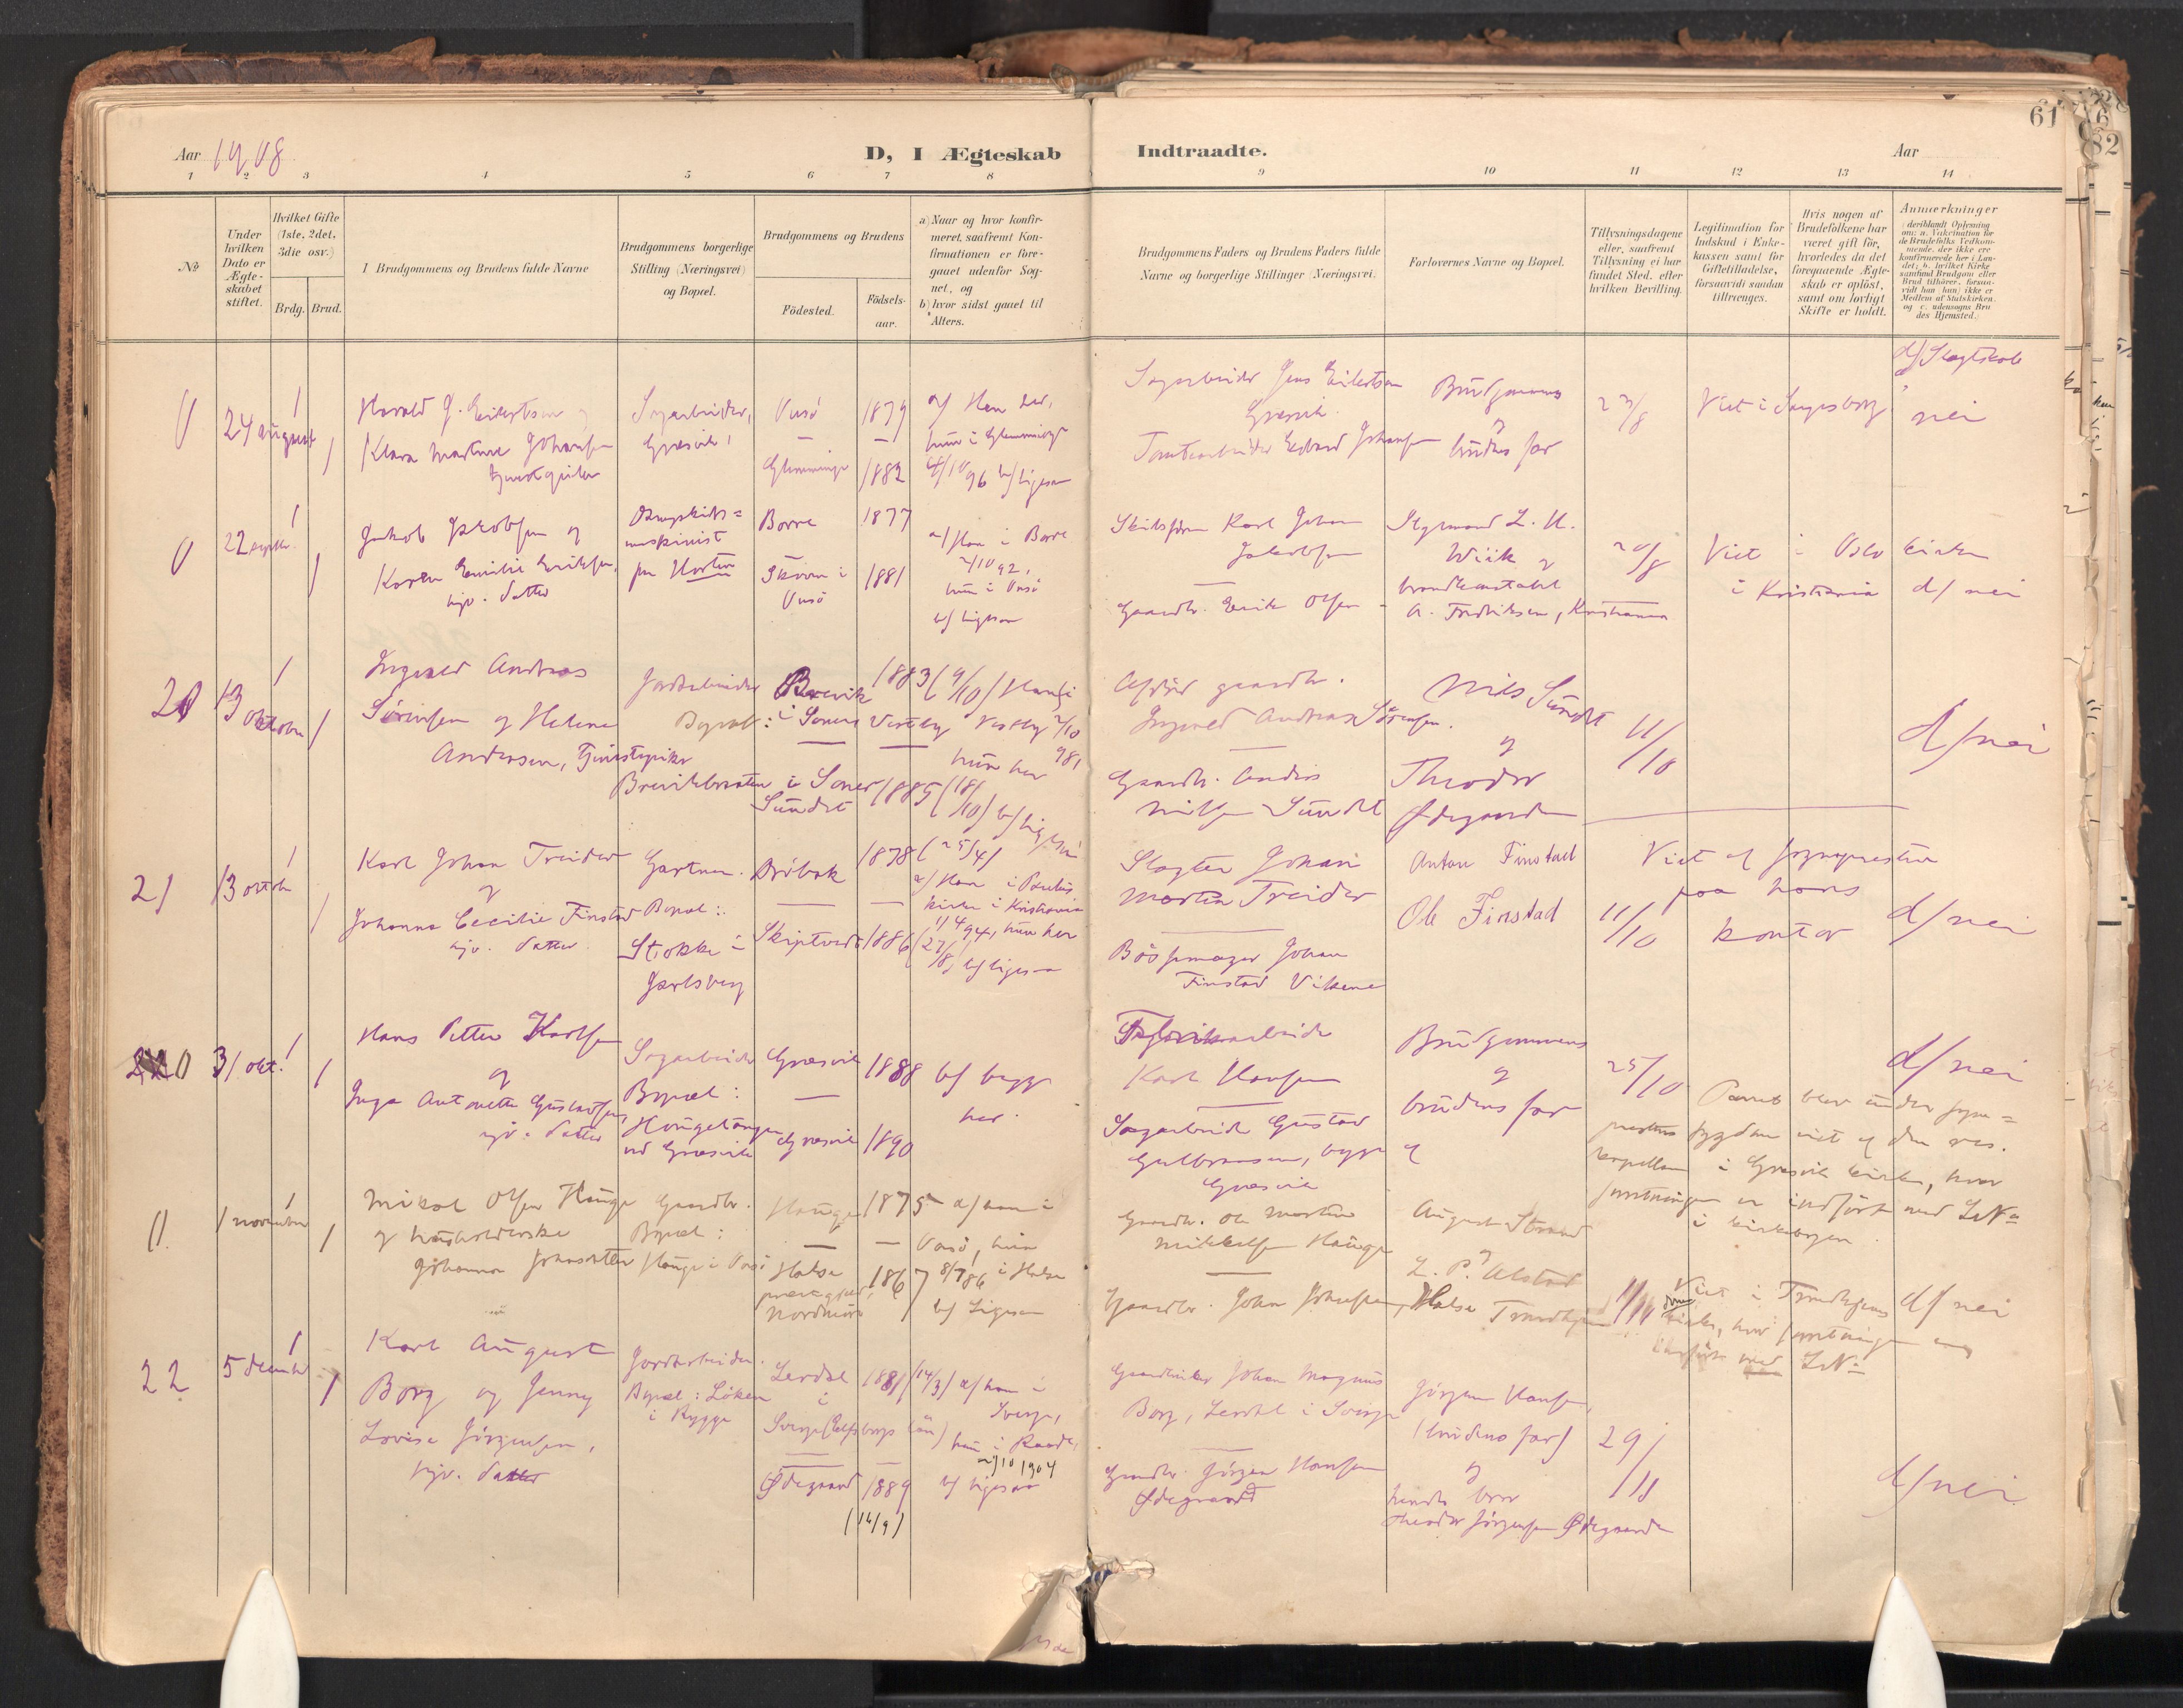 61
Aar 1908
D, I Ægteskab Indtraadte.
Aar
1 2 3 4 5 6 7 8 9 10 11 12 13 14
No
Under hvilken Dato er Ægteskabet stiftet.
Hvilket Gifte (1ste, 2det, 3die osv.)
Brdg. Brud.
I Brudgommens og Brudens fulde Navne
Brudgommens borgerlige Stilling (Næringsvei) og Bopæl.
Brudgommens og Brudens
Fødested.
Fødselsaar.
a) Naar og hvor konfirmeret, saafremt Konfirmationen er foregaaet udenfor Sognet, og
b) hvor sidst gaaet til Alters.
Brudgommens Faders og Brudens Faders fulde Navne og borgerlige Stillinger (Næringsvei)
Forlovernes Navne og Bopæl.
Tillysningsdagene eller, saafremt Tillysning ei har fundet Sted, efter hvilken Bevilling.
Legitimation for Indskud i Enkekassen samt for Giftetilladelse, forsaavidt saadan tiltrænges.
Hvis nogen af Brudefolkene har været gift før, hvorledes da det foregaaende Ægteskab er opløst, samt om lovligt Skifte er holdt.
Anmærkninger
0
24 august
1
1
Harald J. Eilertsen og
Klara Martine Johansen
tjenestepike
Sagarbeider,
Græsvik
Onsø
Glemminge
1879
1882
a/ Han her,
hun i Glemminge
4/10 96 b/ ligesaa
Sagarbeider Jens Eilertsen
Græsvik
Tomtearbeider Edvard Johansen
Brudgommens
og
brudens far
23/8
Viet i Sarpsborg
d/ Slegtskab
nei
0
22 septbr.
1
1
Jakob Jakobsen og
Karen Emilie Eriksen,
hjv. datter
maskinist
paa Horten
Borre
i
Onsø
1877
1881
a/ Han i Borre
2/10 92,
hun i Onsø
b/ ligesaa
Karl Johan
Jakobsen
Gaardbr. Erik Olsen
L. H.
Wiik og
brandkonstabel
A. Fredriksen, Kristiania
20/8
Viet i Oslo kirke
i Kristiania
d/ nei
20
13 oktober
1
1
Ingvald Andreas
Sørensen og Helene
Andersen, tjenestepike
Jordarbeider
Bopæl:
Brevikbraaten i Soner
Brevik
i Soner, Vestby
Sundet
1883 (9/10)
1885 (18/10)
a/ Han i
Vestby 2/10
98,
hun her
b/ ligesaa
Afdød gaardbr.
Ingvald Andreas Sørensen.
Gaardbr. Anders
Nilsen Sundet
Nils Sundet
og
Theodor
Ødegaarden
11/10
d/ nei
21
13 oktobr
1
1
Karl Johan Treider
og
Johanne Cecilie Finstad
hjv. datter
Gartner.
Bopæl:
Stokke i
Jarlsberg
Drøbak
Skiptvedt
1878 (25/4)
1886 (27/8)
a/ Han i Paulus
kirke i Kristiania
11/4 94, hun her
b/ ligesaa
Slagter Johan
Martin Treider
Bøssemager Johan
Finstad Vikene
Anton Finstad
Ole Finstad
11/10
Viet af sognepresten
paa hans
kontor
d/ nei
0
31 okt.
1
1
Hans Petter Karlsen
og
Inga Antonette Gustavsen,
hjv. datter
Sagarbeider
Bopæl:
Haugetangen
ved Græsvik
Græsvik
Græsvik
1888
1890
b/ begge
her.
Fabrikarbeider
Karl Hansen
Sagarbeider Gustav
Gulbransen, begge af
Græsvik
Brudgommens
og
brudens far
25/10
d/ nei
Parret blev under sogneprestens sygdom viet af den res.
kapellan i Græsvik kirke, hvor
forretningen er indført med LNo
i kirkebogen.
0
1 november
1
1
Mikal Olsen Hauge
og husholderske
Johanna Johnsdatter
Gaardbr.
Bopæl:
Hauge i Onsø
Hauge
Halse
prestegjeld,
Nordmøre
1875
1867
a/ han i
Onsø, hun
8/7 86 i Halse
b/ Ligesaa
Gaardbr. Ole Martin
Mikkelsen Hauge
Gaardbr. John Johnsen, Halse
August Strand
og
L. P. Alstad
Trondhjem
1/11
Viet i Trondhjems
domkirke, hvor forretningen er
indført med LNo
d/ nei
22
5 december
1
1
Karl August
Borg og Jenny
Lovise Jørgensen,
hjv. datter
Jordarbeider.
Bopæl: Løken
i Rygge
Lerdal
i
Sverige (Elfsborgs län)
Ødegaard
1881 (14/3)
1889
(16/9)
a/ han i
Sverige,
hun i Raade,
2/10 1904
b/ ligesaa
Gaardbruker Johan Magnus
Borg, Lerdal i Sverige
Gaardbr. Jørgen Hansen
Ødegaard
Jørgen Hansen,
(brudens far)
og
hendes bror
Theodor Jørgensen Ødegaarden
29/11
d/ nei